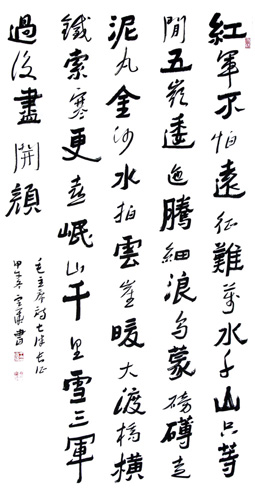 紅軍不怕遠征難萬水千山只等
閒五嶺逶迤騰細浪烏蒙磅礴走
泥丸金沙水拍雲崖暖大渡橋橫
鐵索寒更喜岷山千里雪三軍
過後盡開顏
毛主席詩七律長征
甲午冬 書